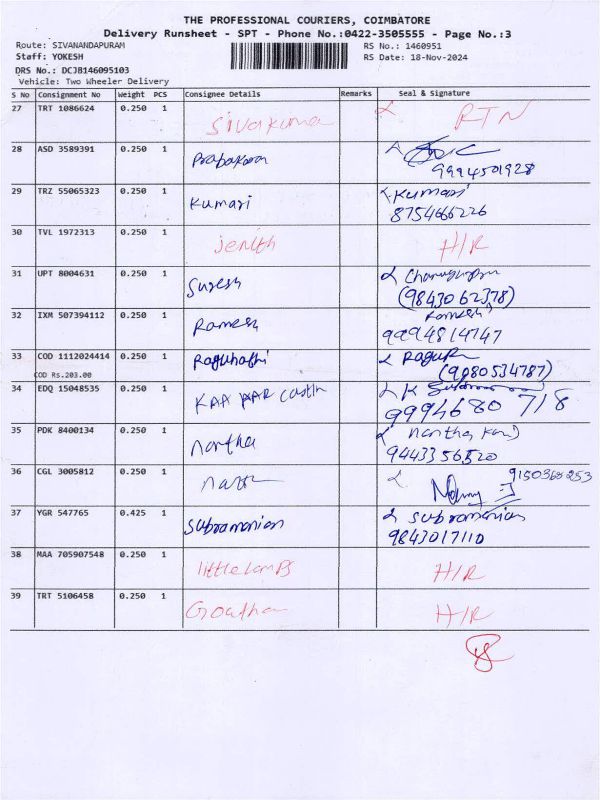 THE PROFESSIONAL COURIERS, COIMBATORE
Delivery Runsheet - SPT - Phone No.:0422-3505555 - Page No.:3
Route: SIVANANDAPURAM RS No.: 1460951
Staff: YOKESH RS Date: 18-Nov-2024
DRS No.: DCJB146095103
Vehicle: Two Wheeler Delivery
S No Consignment No Weight PCS Consignee Details Remarks Seal & Signature
27 TRT 1086624 0.250 1 Sivakumar RTN
28 ASD 3589391 0.250 1 Prabakaran
9994501928
29 TRZ 55065323 0.250 1 Kumari Kumari
8754666226
30 TVL 1972313 0.250 1 Jenith H/R
31 UPT 8004631 0.250 1 Suresh
(9843062378)
32 IXM 507394112 0.250 1 Ramesh Ramesh
9994814747
33 COD 1112024414 0.250 1 Raguhathi Ragu
COD Rs.203.00 (9880534787)
34 EDQ 15048535 0.250 1 KAA
9994680 718
35 PDK 8400134 0.250 1 nantha nantha
9443356520
36 CGL 3005812 0.250 1
37 YGR 547765 0.425 1 Subramanian Subramanian
9843017110
38 MAA 705907548 0.250 1 little lamps H/R
39 TRT 5106458 0.250 1 Goutham H/R